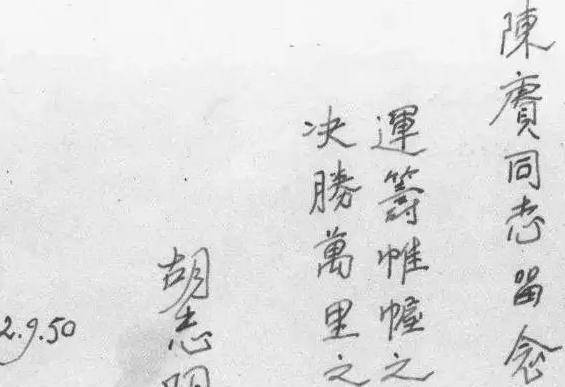 陳賡同志留念
運籌帷幄之
决勝萬里之
胡志明
2.9.50